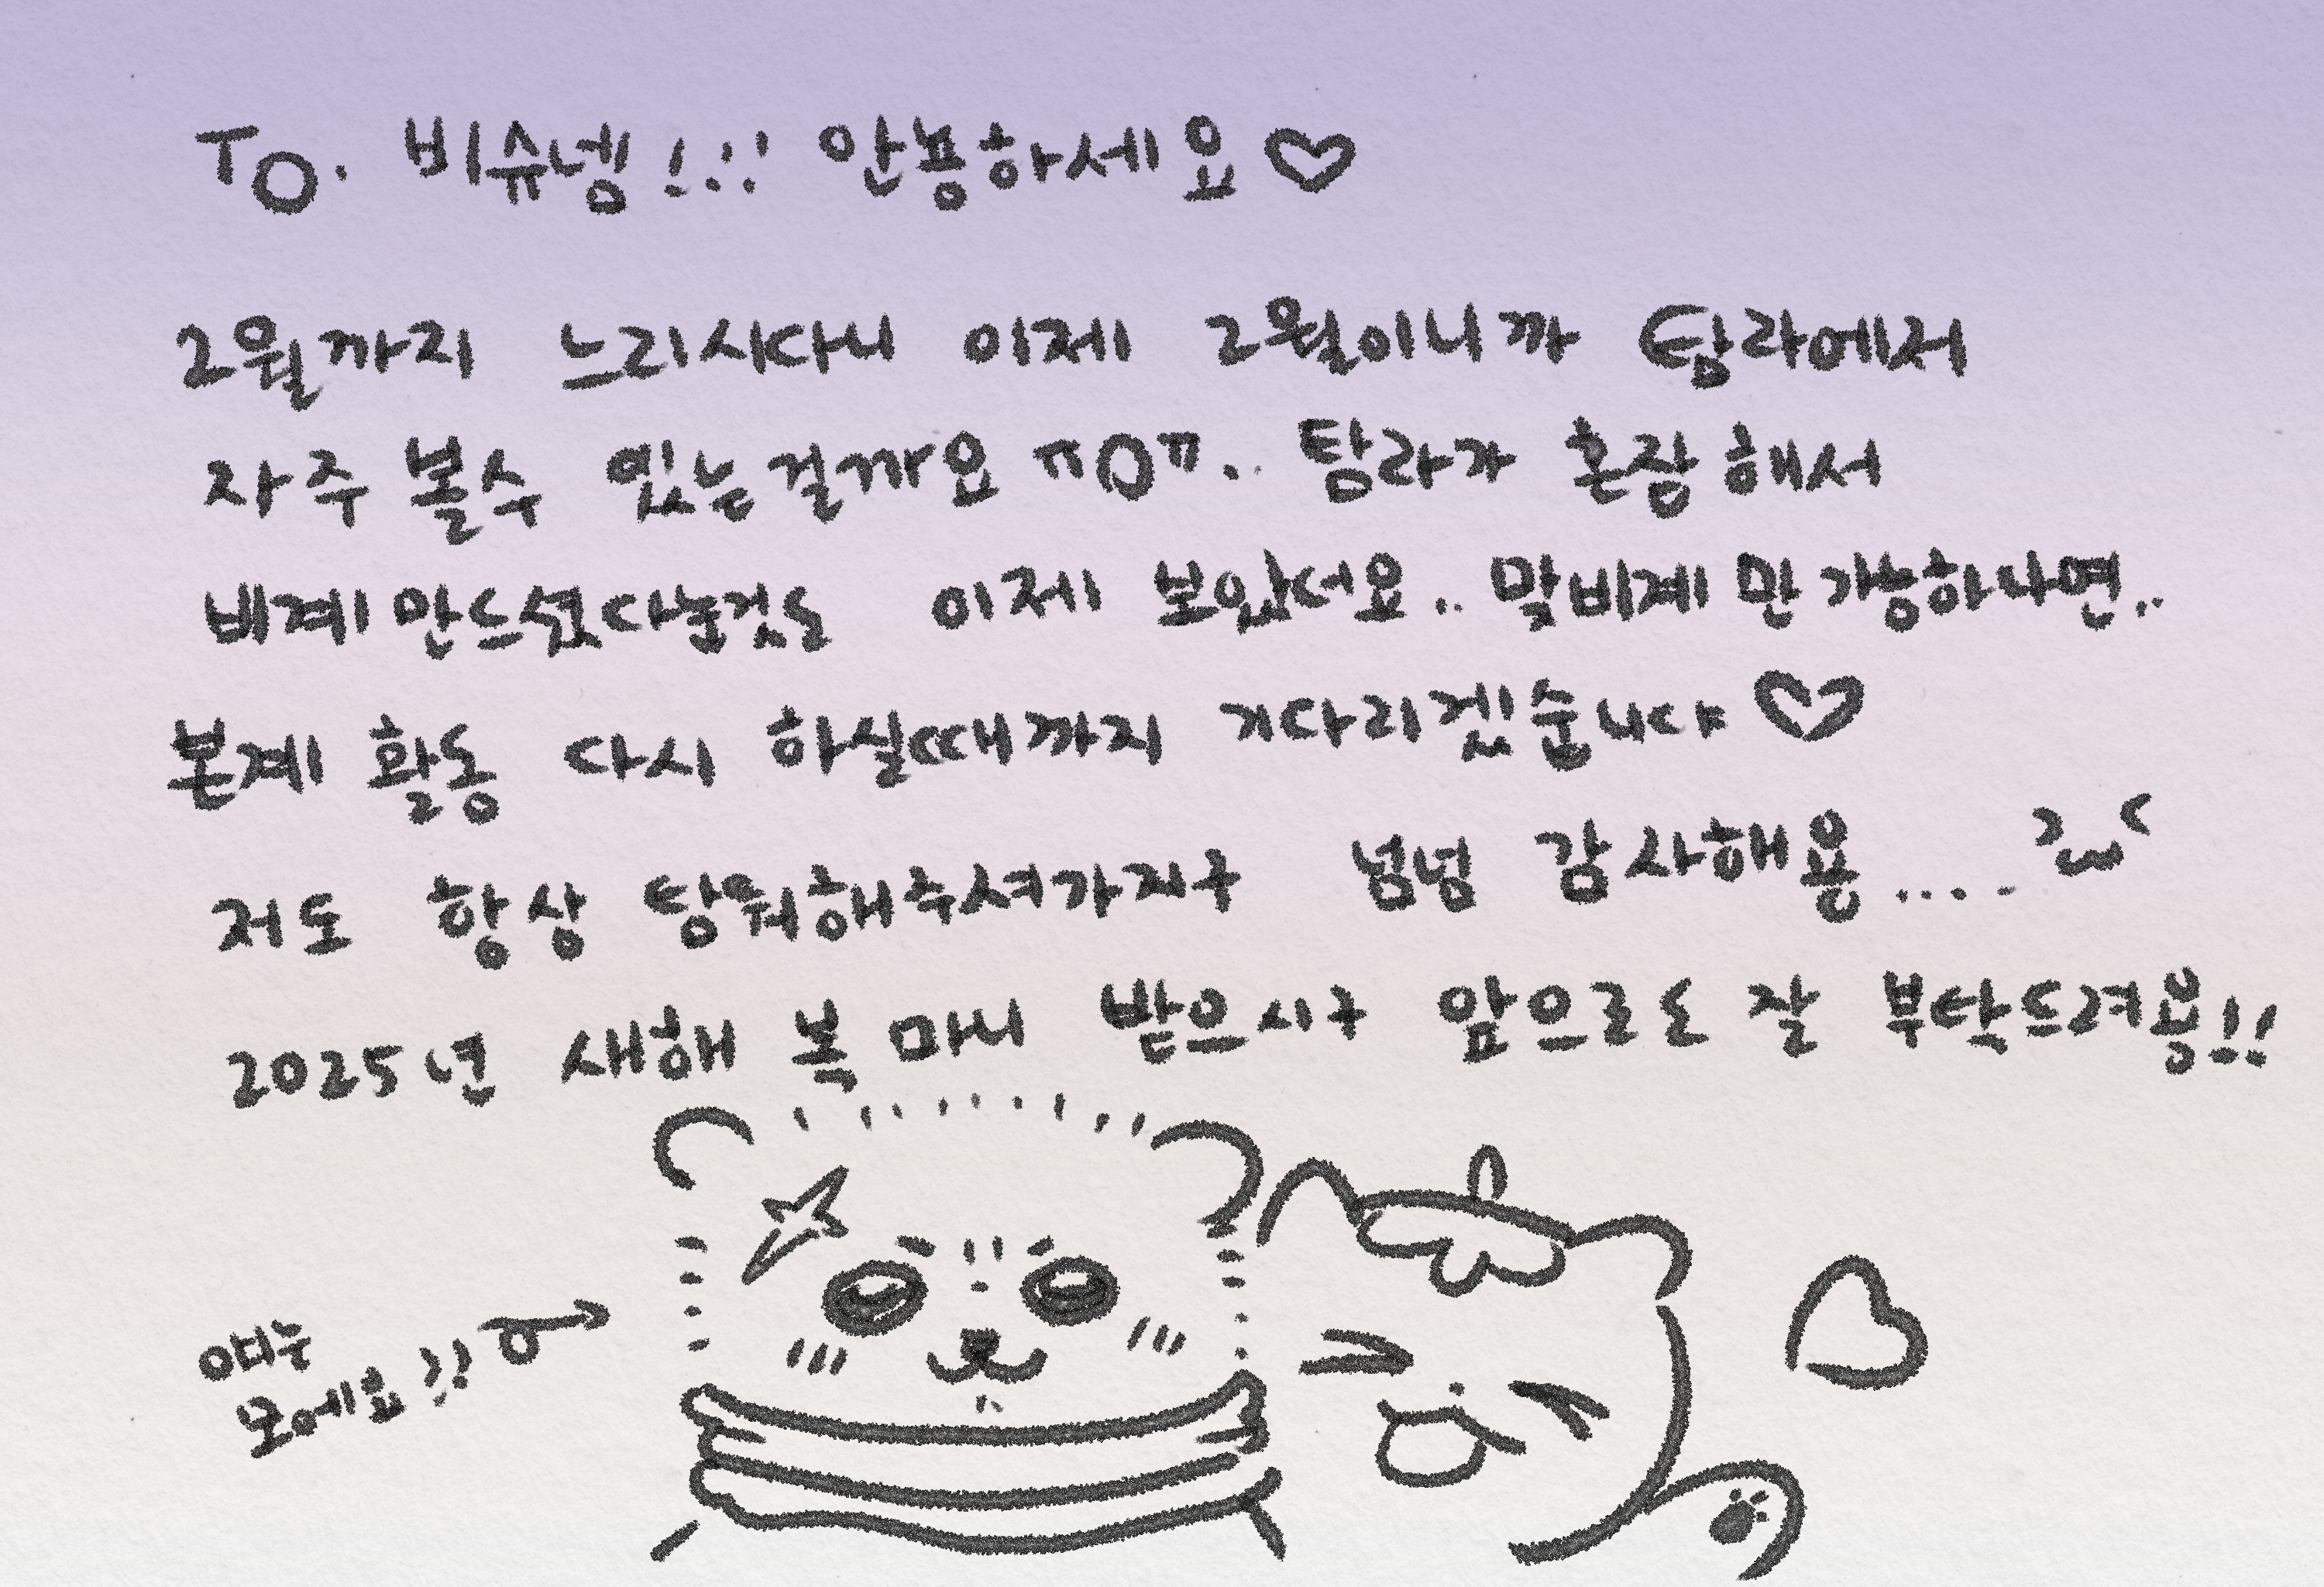 To. 비슈넹!!! 안뇽하세요♡
2월까지 느리시다니 이제 2월이니까 탐라에서
자주 볼수 있는걸까요 ㅠOㅠ.. 탐라가 혼잡해서
비계만드셨다눈것도 이제 보았서요.. 맞비계만 가능하냐면..
본계 활동 다시 하실때까지 기다리겠숩니댜♡
저도 항상 탐춰해주셔가지구 넘넘 감사해용....
2025년 새해 복 마니 받으시구 앞으로도 잘 부탁드려용!!
모에요!!